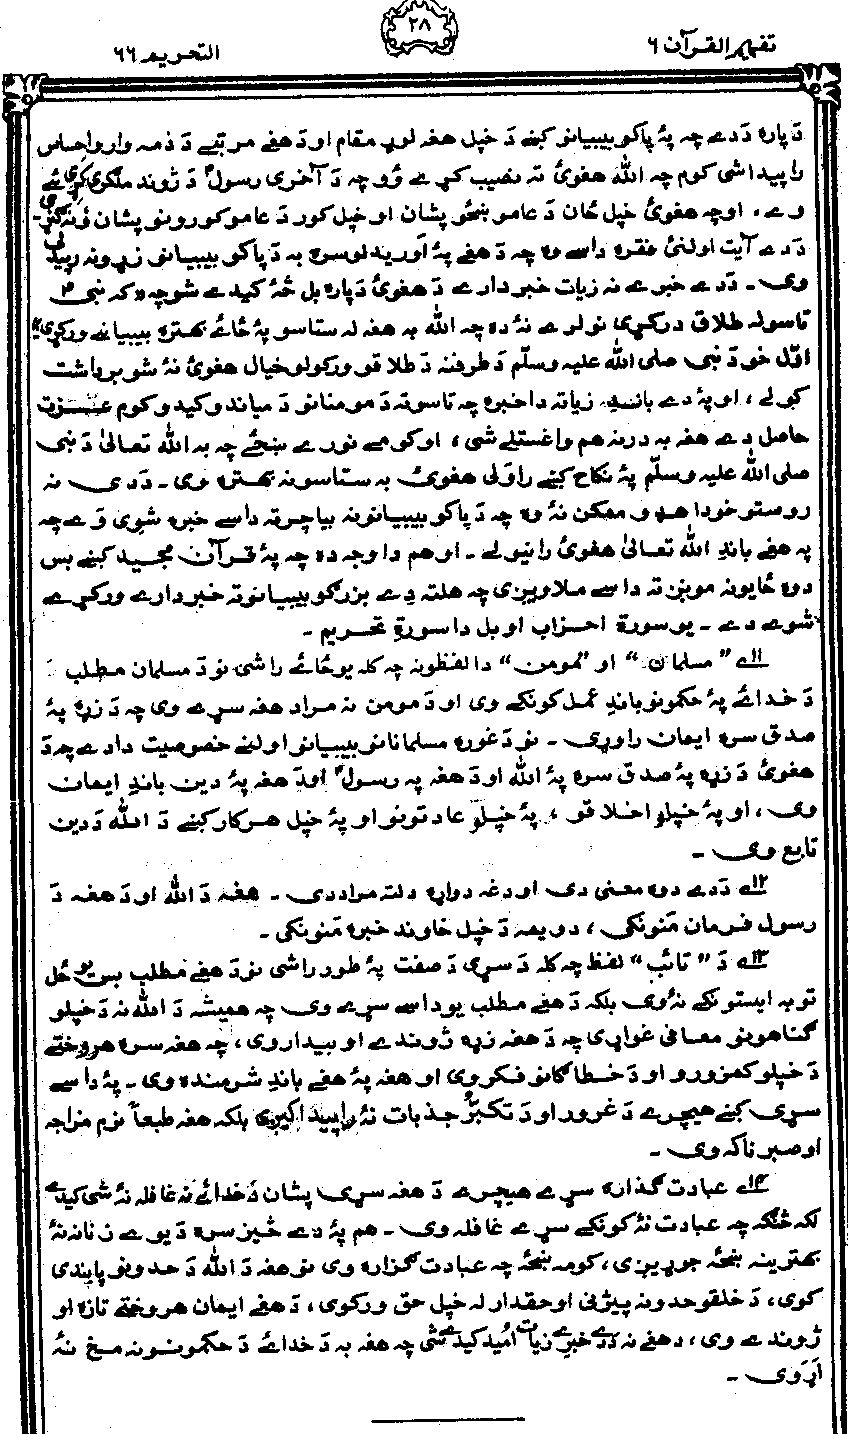 تفهيم القرآن ٦
٢٨
التحريم ٦٦
دَ پاره دَ دے چه پهٔ پاکو بيبيانو کښے دَ خپل هغه لوړ مقام او دَ هغے مرتبے دَ ذمه وارو احساس
را پيدا شى کوم چه الله هغوئ ته نصيب کړے ؤ و چه دَ آخرى رسولؐ دَ ژوند ملګرى کړى ئے
وے، او چه هغوئ خپل ځان دَ عامو ښځو پشان او خپل کور دَ عامو کورونو پشان ؤ نهٔ ګڼى۔
دَ دے آيت اولنئ فقره داسے وه چه دَ هغے پهٔ اوريدلو سره به دَ پاکو بيبيانو زړونه رپيدلى
وى۔ دَ دے خبرے نه زيات خبردارے دَ هغوئ دَ پاره بل څهٔ کيدے شو چه "که نبىؐ
تاسو له طلاق درکړى نو لرے نهٔ ده چه الله به هغه له ستاسو پهٔ ځائے بهترے بيبيانے ورکړى"
اوّل خو دَ نبى صلى الله عليه وسلّم دَ طرفنه دَ طلاقو ورکولو خيال هغوئ نهٔ شو برداشت
کولے، او پهٔ دے باندے زياته دا خبره چه تاسو ته دَ مومنانو دَ مياندو کيدو کوم عِزّت
حاصل دے هغه به درنه هم واغستلے شى، او کومے نورے ښځے چه به الله تعالىٰ دَ نبى
صلى الله عليه وسلّم پهٔ نکاح کښے راولى هغوئ به ستاسو نه بهترے وى۔ دَ دى نه
روستو خو دا هډو ممکن نهٔ وه چه دَ پاکو بيبيانو نه بيا چرته داسے خبره شوى وَے چه
په هغے باندِ الله تعالىٰ هغوئ رانيولے۔ او هم دا وجه ده چه پهٔ قرآن مجيد کښے بس
دوه ځايونه مونږ ته داسے ملاويږى چه هلته دِے بزرګو بيبيانو ته خبردارے ورکړے
شوے دے۔ يو سورة احزاب او بل دا سورةِ تحريم۔
۱۱ے "مسلمان" او "مومن" دا لفظونه چه کله يو ځائے راشى نو دَ مسلمان مطلب
دَ خدائے پهٔ حکمونو باندِ عمل کونکے وى او دَ مومن نه مراد هغه سړے وى چه دَ زړه پهٔ
صدق سره ايمان راوړى۔ نو دَ غوره مسلمانانو بيبيانو اولنے خصوصيت دا دے چه دَ
هغوئ دَ زړه پهٔ صدق سره پهٔ الله او دَ هغه پهٔ رسولؐ او دَ هغه پهٔ دين باندِ ايمان
وى، او پهٔ خپلو اخلاقو، پهٔ خپلو عادتونو او پهٔ خپل هر کار کښے دَ الله دَ دين
تابع وى۔
۱۲ے دَ دے دوه معنى دى او دغه دواړه دلته مراد دى۔ هغه دَ الله او دَ هغه دَ
رسول فرمان مَنونکى، دويمه دَ خپل خاوند خبره مَنونکى۔
۱۳ے دَ "تائب" لفظ چه کله دَ سړى دَ صفت پهٔ طور راشى نو دَ هغے مطلب بس يو ځل
توبه ايستونکے نهٔ وى بلکه دَ هغے مطلب يو داسے سړے وى چه هميشه دَ الله نه دَ خپلو
ګناهونو معافى غواړى چه دَ هغه زړه ژوندے او بيدار وى، چه هغه سره هر وختے
دَ خپلو کمزورو او دَ خطا ګانو فکر وى او هغه پهٔ هغے باندِ شرمنده وى۔ پهٔ داسے
سړى کښے هيچرے دَ غرور او دَ تکبّر جذبات نهٔ را پيدا کيږى بلکه هغه طبعاً نرم مزاجه
او صبرناکه وى۔
۱۴ے عبادت ګذاره سړے هيچرے دَ هغه سړى پشان دَ خدائے نه غافله نهٔ شى کيدے
لکه څنګه چه عبادت نهٔ کونکے سړے غافله وى۔ هم پهٔ دے څيز سره دَ يوے زنانه نهٔ
بهترينه ښځه جوړيږى، کومه ښځه چه عبادت ګزاره وى نو هغه دَ الله دَ حدونو پابندى
کوى، دَ خلقو حدونه پيژنى او حقدار له خپل حق ورکوى، دَ هغے ايمان هر وختے تازه او
ژوندے وى، دَ هغے نه دَ دے خبرے زيات اميد کيدے شى چه هغه به دَ خدائے دَ حکمونو نه مخ نهٔ
اړوى۔